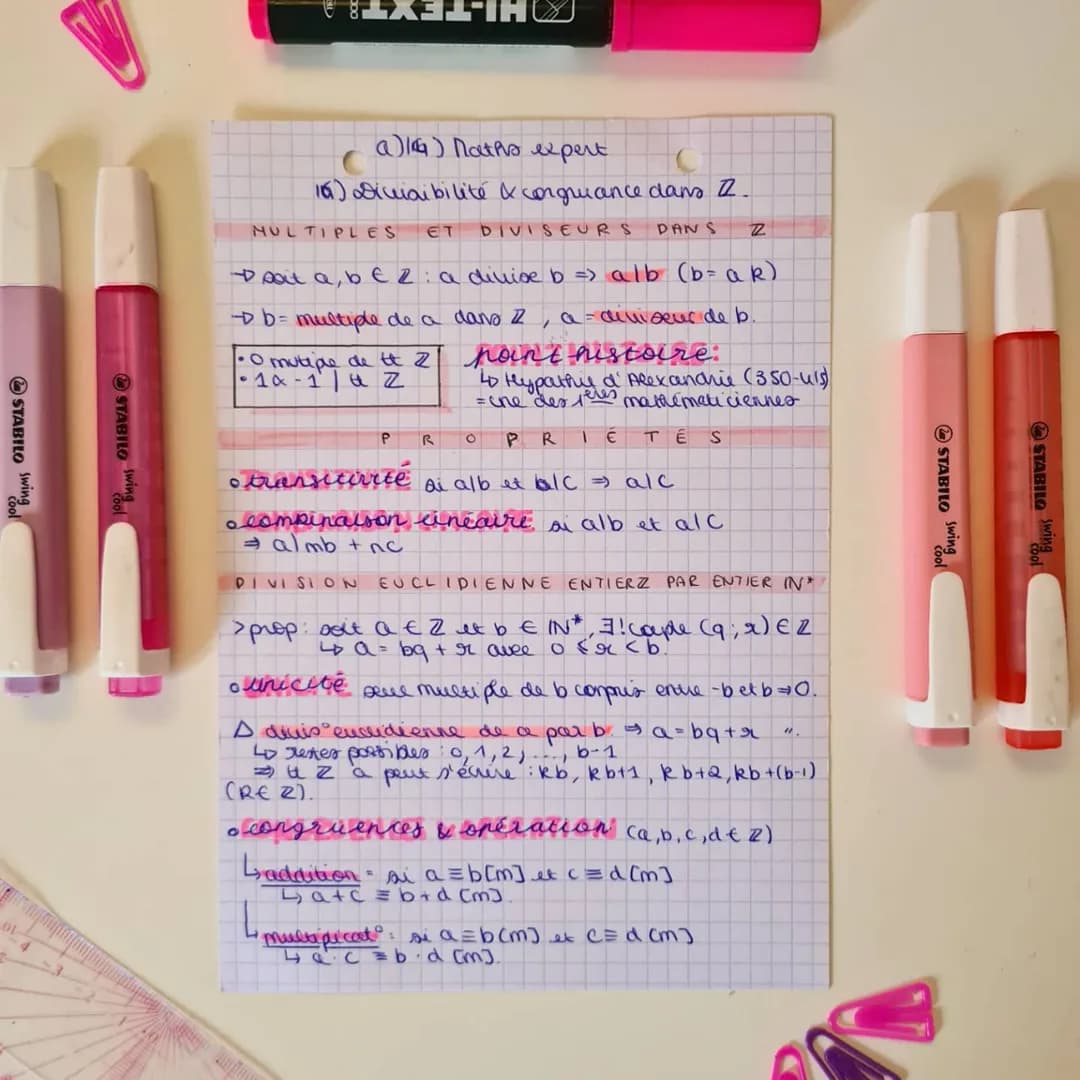 HI-TEXT
a)(G) Maths expert
1G) Divisibilité & congruance dans ℤ.
MULTIPLES ET DIVISEURS DANS ℤ
→ soit a, b ∈ ℤ : a divise b => a|b (b = a k)
→ b = multiple de a dans ℤ, a = diviseur de b.
• 0 mutipe de tt ℤ
• 1 & -1 | tt ℤ
point histoire:
↳ Hypathie d'Alexandrie (350-415)
= une des 1ères mathématiciennes
PROPRIÉTÉS
• transitivité si a|b et b|c ⇒ a|c
• combinaison linéaire si a|b et a|c
⇒ a|mb + nc
DIVISION EUCLIDIENNE ENTIERℤ PAR ENTIER IN*
> prop : soit a ∈ ℤ et b ∈ IN*, ∃! couple (q ; r) ∈ ℤ
↳ a = bq + r avec 0 ≤ r < b.
• unicité seul multiple de b compris entre -b et b ⇒ 0.
Δ divis° euclidienne de a par b. ⇒ a = bq + r ".
↳ restes possibles : 0, 1, 2, ..., b-1
⇒ tt ℤ a peut s'écrire : kb, kb+1, kb+2, kb+(b-1)
(k ∈ ℤ).
• congruences & opération (a, b, c, d ∈ ℤ)
↳ addition = si a ≡ b [m] et c ≡ d [m]
↳ a + c ≡ b + d [m].
↳ multiplicat° : si a ≡ b [m] et c ≡ d [m]
↳ a · c ≡ b · d [m].
STABILO swing cool
STABILO swing cool
STABILO swing cool
STABILO swing cool